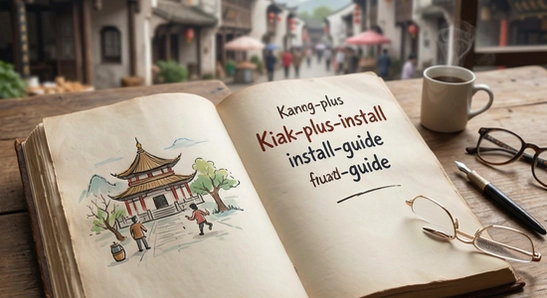 Kanng-plus
Kiak-plus-install
install-guide
-guide